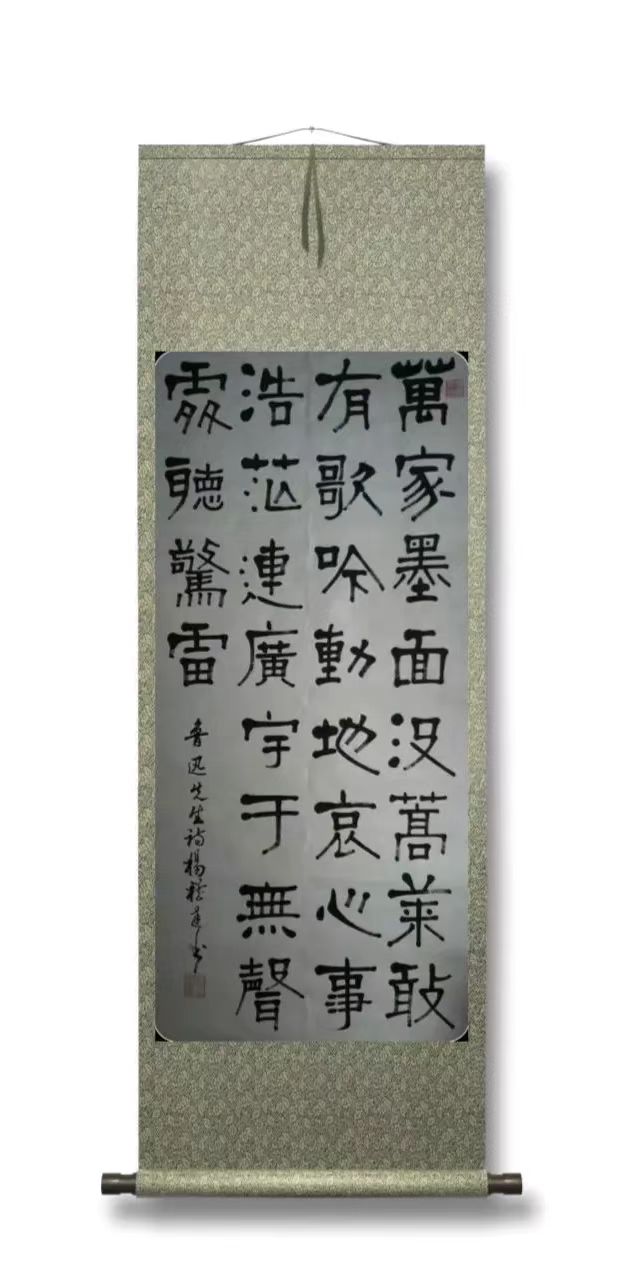 萬家墨面没蒿萊敢
有歌吟動地哀心事
浩茫連廣宇于無聲
處聽驚雷
鲁迅先生诗楊书